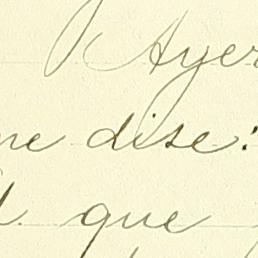 Ayer
me dise:
que